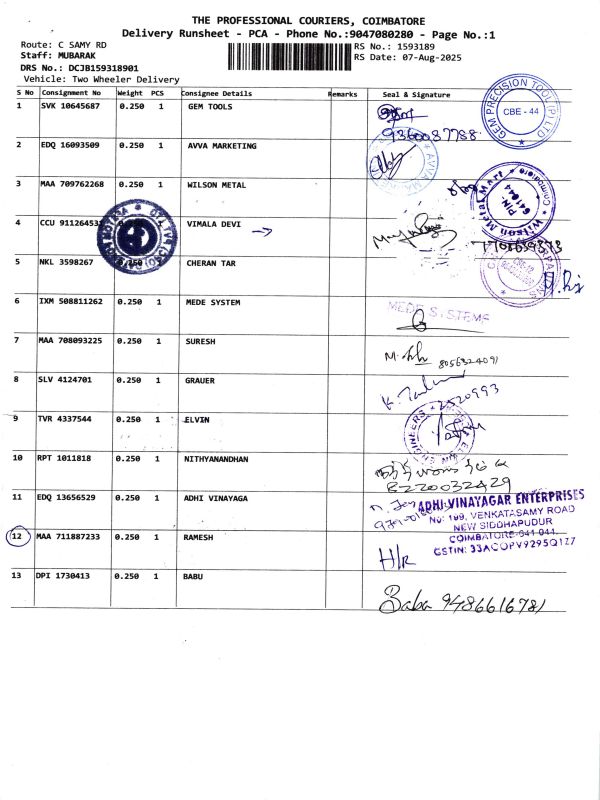 THE PROFESSIONAL COURIERS, COIMBATORE
Delivery Runsheet - PCA - Phone No.:9047080280 - Page No.:1
Route: C SAMY RD
RS No.: 1593189
Staff: MUBARAK
RS Date: 07-Aug-2025
DRS No.: DCJB159318901
Vehicle: Two Wheeler Delivery
S No Consignment No Weight PCS Consignee Details Remarks Seal & Signature
1 SVK 10645687 0.250 1 GEM TOOLS
GEM PRECISION TOOL (P) LTD
CBE - 44
9360087788
2 EDQ 16093509 0.250 1 AVVA MARKETING
3 MAA 709762268 0.250 1 WILSON METAL
Wilson Metal Mart
Coimbatore
PIN:
641044
4 CCU 91126453 1 VIMALA DEVI
5 NKL 3598267 0.250 1 CHERAN TAR
6 IXM 508811262 0.250 1 MEDE SYSTEM
MEDE SYSTEMS
7 MAA 708093225 0.250 1 SURESH
8056324091
8 SLV 4124701 0.250 1 GRAUER
2520993
9 TVR 4337544 0.250 1 ELVIN
10 RPT 1011818 0.250 1 NITHYANANDHAN
8220032429
11 EDQ 13656529 0.250 1 ADHI VINAYAGA
ADHI VINAYAGAR ENTERPRISES
No: 109, VENKATASAMY ROAD
NEW SIDDHAPUDUR
COIMBATORE-641 044.
GSTIN: 33ACOPV9295Q1Z7
12 MAA 711887233 0.250 1 RAMESH
H/R
13 DPI 1730413 0.250 1 BABU
Baba 9486616781